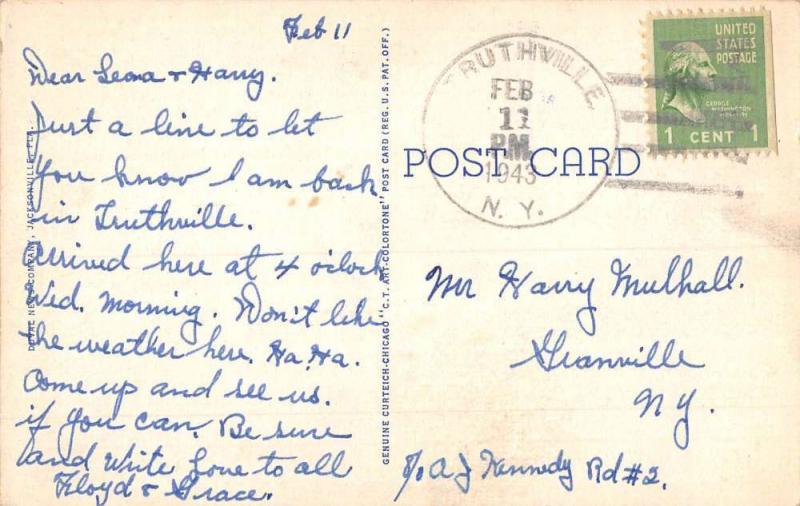 Feb 11
Dear Leona & Harry.
Just a line to let
You know I am back
in Truthville.
Arrived here at 4 o'clock
Wed. Morning. Don't like
the weather here. Ha. Ha.
Come up and see us.
if you can. Be sure
and write Love to all
Floyd & Grace.
DUVAL NEWS COMPANY, JACKSONVILLE, FLA.
GENUINE CURTEICH-CHICAGO "C.T. ART-COLORTONE" POST CARD (REG. U.S. PAT. OFF.)
TRUTHVILLE,
FEB
11
P.M.
1943
N. Y.
UNITED
STATES
POSTAGE
GEORGE
WASHINGTON
1 CENT 1
POST CARD
Mr Harry Mulhall.
Granville
N.Y.
c/o A J Kennedy Rd #2.